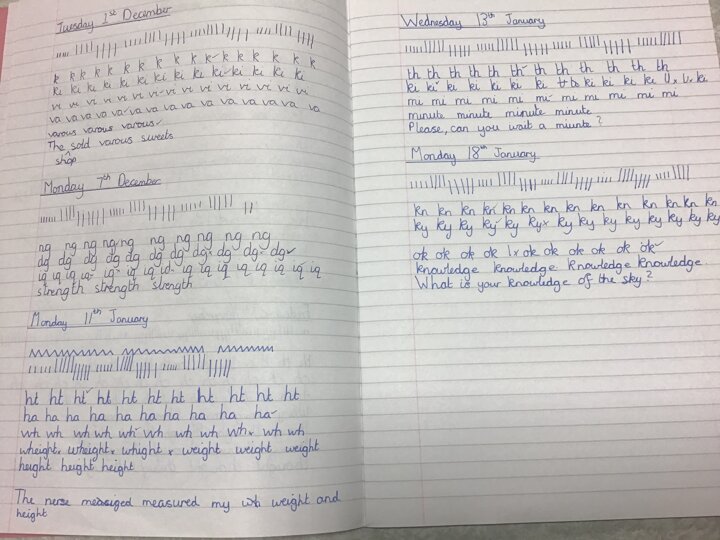 Tuesday 1st December
k k k k k k k k k k k k k
ki ki ki ki ki ki ki ki ki ki ki ki ki
vi vi vi vi vi vi vi vi vi vi vi vi
va va va va va va va va va va va va va va
varous varous varous
The sold varous sweets
shop
Monday 7th December
ng ng ng ng ng ng ng ng ng ng
dg dg dg dg dg dg dg dg dg dg dg
iq iq iq iq iq iq iq iq iq iq iq iq iq iq iq
strength strength strength
Monday 11th January
ht ht ht ht ht ht ht ht ht ht ht
ha ha ha ha ha ha ha ha ha ha
wh wh wh wh wh wh wh wh wh wh wh
wheight wheight x whight x weight weight weight
height height height
The nerse measiged measured my wh weight and
height
Wednesday 13th January
th th th th th th th th th th th
ki ki ki ki ki ki ki ki ki ki ki
mi mi mi mi mi mi mi mi mi mi mi
minute minute minute minute
Please, can you wait a miunte?
Monday 18th January
kn kn kn kn kn kn kn kn kn kn kn kn kn
ky ky ky ky ky kyx ky ky ky ky ky ky ky
ok ok ok ok ok ok ok ok ok ok
knowledge knowledge knowledge knowledge.
What is your knowledge of the sky?